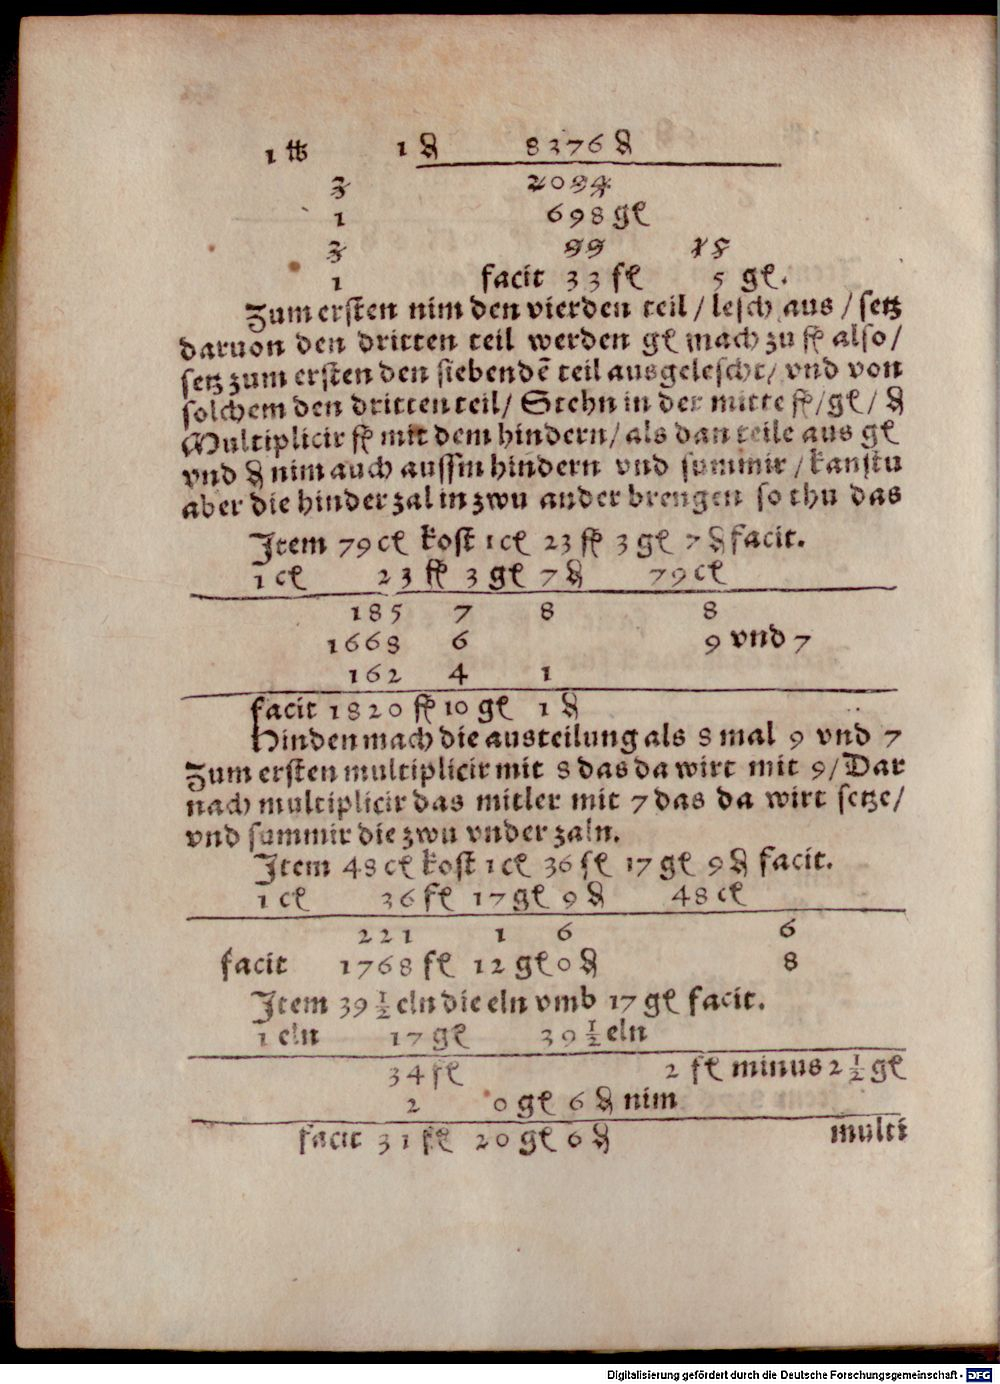 1 ℔ 1 ₰ 8376 ₰
3 2094
1 698 gl
3 99 18
1 facit 33 fl 5 gl.
Zum ersten nim den vierden teil / lesch aus / setz
daruon den dritten teil werden gl mach zu fl also /
setz zum ersten den siebendē teil ausgelescht / vnd von
solchem den dritten teil / Stehn in der mitte fl / gl / ₰
Multiplicir fl mit dem hindern / als dan teile aus gl
vnd ₰ nim auch aussm hindern vnd summir / kanstu
aber die hinder zal in zwu ander brengen so thu das
Item 79 cl kost 1 cl 23 fl 3 gl 7 ₰ facit.
1 cl 23 fl 3 gl 7 ₰ 79 cl
185 7 8 8
1668 6 9 vnd 7
162 4 1
facit 1820 fl 10 gl 1 ₰
Hinden mach die austeilung als 8 mal 9 vnd 7
Zum ersten multiplicir mit 8 das da wirt mit 9 / Dar
nach multiplicir das mitler mit 7 das da wirt setze /
vnd summir die zwu vnder zaln.
Item 48 cl kost 1 cl 36 fl 17 gl 9 ₰ facit.
1 cl 36 fl 17 gl 9 ₰ 48 cl
221 1 6 6
facit 1768 fl 12 gl 0 ₰ 8
Item 39 ½ eln die eln vmb 17 gl facit.
1 eln 17 gl 39 ½ eln
34 fl 2 fl minus 2 ½ gl
2 0 gl 6 ₰ nim
facit 31 fl 20 gl 6 ₰ multi
Digitalisierung gefördert durch die Deutsche Forschungsgemeinschaft - DFG